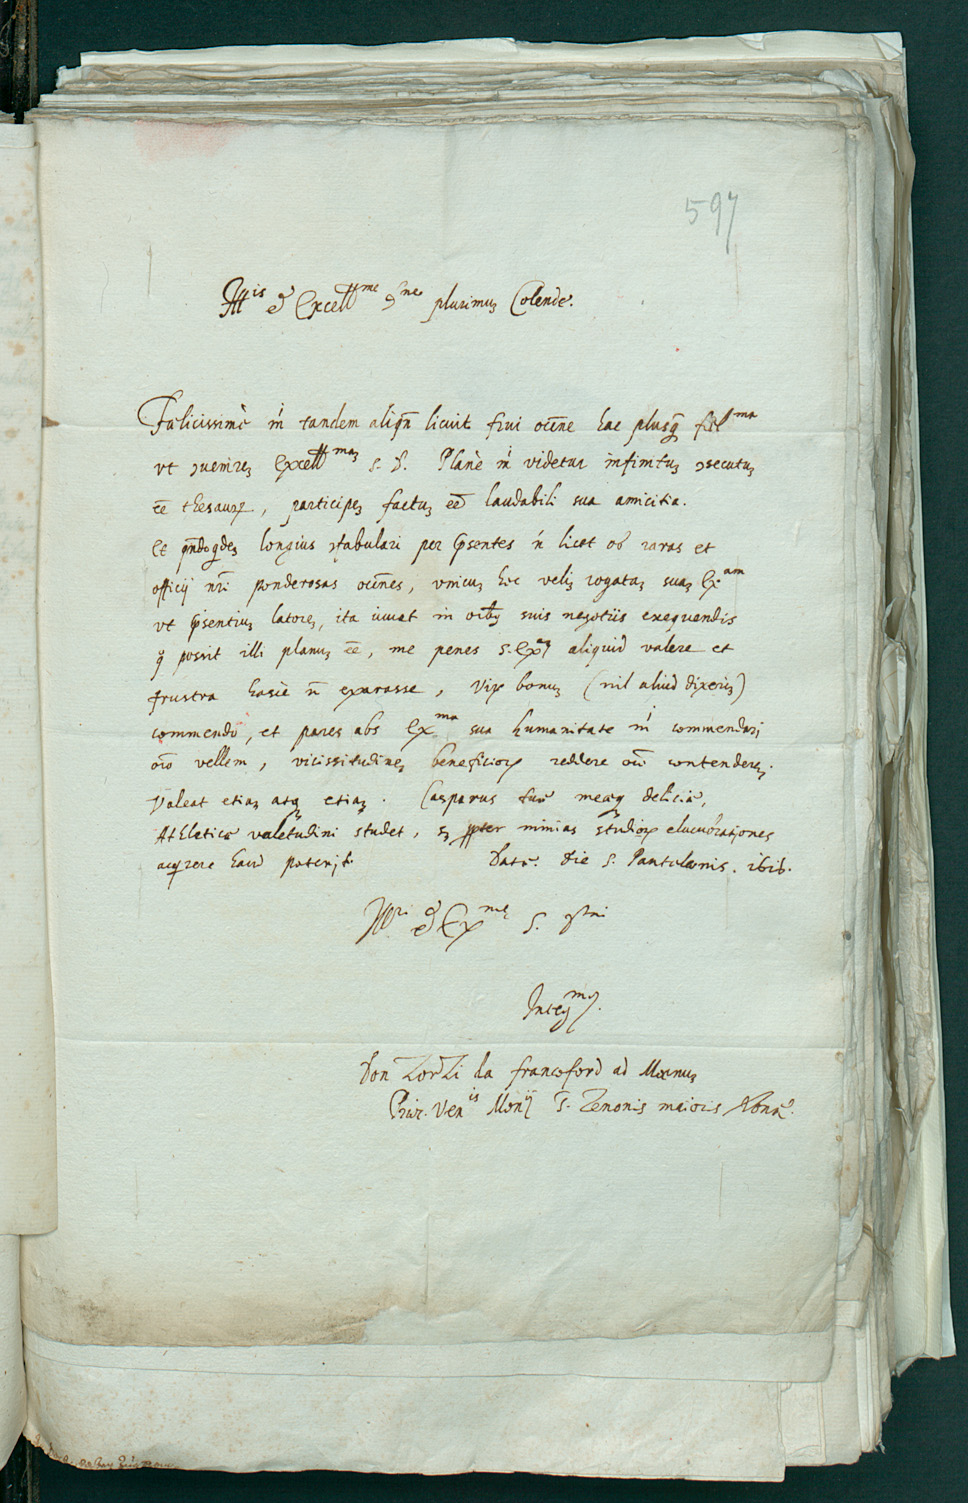 597
Ill.is et Excell.me D.ne plurimuz Colende.
Felicissimè m.i tandem aliqñ licuit frui oc̄c̄ne hac plusq̃ fel.ma
vt ꝯuenireʒ Excell.maʒ S. D. Planè m.i videtur infinituʒ ꝯsecutuʒ
eē thesaurꝝ, participeʒ factuʒ eē laudabili sua amicitia.
Et longius ꝯfabulari per p̃sentes ñ licet ob raras et
officij nr̃i ponderosas occ̄nes, vnicuʒ hoc veliʒ rogataʒ suaʒ Ex.am
vt p̃sentiuʒ latoreʒ, ita iuuat in oībꝰ suis negotiis exequendis
q̃ possit illi planuʒ eē, me penes S. Ex. aliquid valere et
frustra hasce ñ exarasse, Virꝝ bonuʒ (nil aliud dixeriʒ)
commendo, et pares abs Ex.ma sua humanitate m.i commendari
oīo vellem, vicissitudineʒ beneficiorꝝ reddere contendereʒ.
Valeat etiaʒ atq̃ etiaʒ. Casparus tuæ meæq̃ deliciæ,
Athleticæ valetudini studet, ꝓpter nimias studiorꝝ elucubrationes
acq̃rere haud poterit. Datæ. die S. Pantaleonis. 1616.
Ill.ri et Ex.mæ S. D.ni
Integ.mꝰ.
Don Zorzi da francoford ad Mænuʒ
Prior. Ven.is Mon.ij S. Zenonis maioris Veronæ.